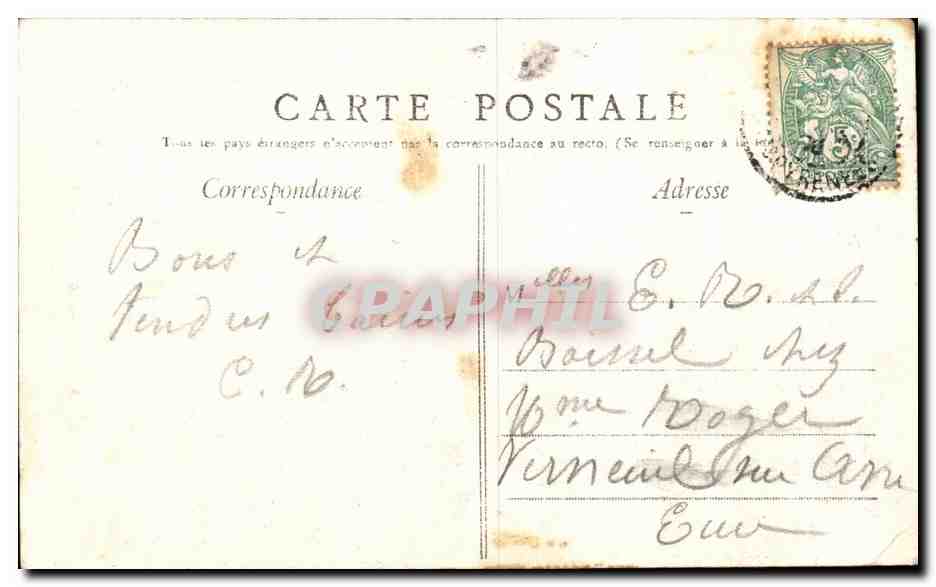 CARTE POSTALE
Tous les pays étrangers n'acceptent pas la correspondance au recto. (Se renseigner à la
Correspondance
Adresse
5
Bons et
tendres baisers
C. R.
CPAPHIL
Melles E. R. et
Boissel chez
Mme Roger
Verneuil sur Avre
Eure